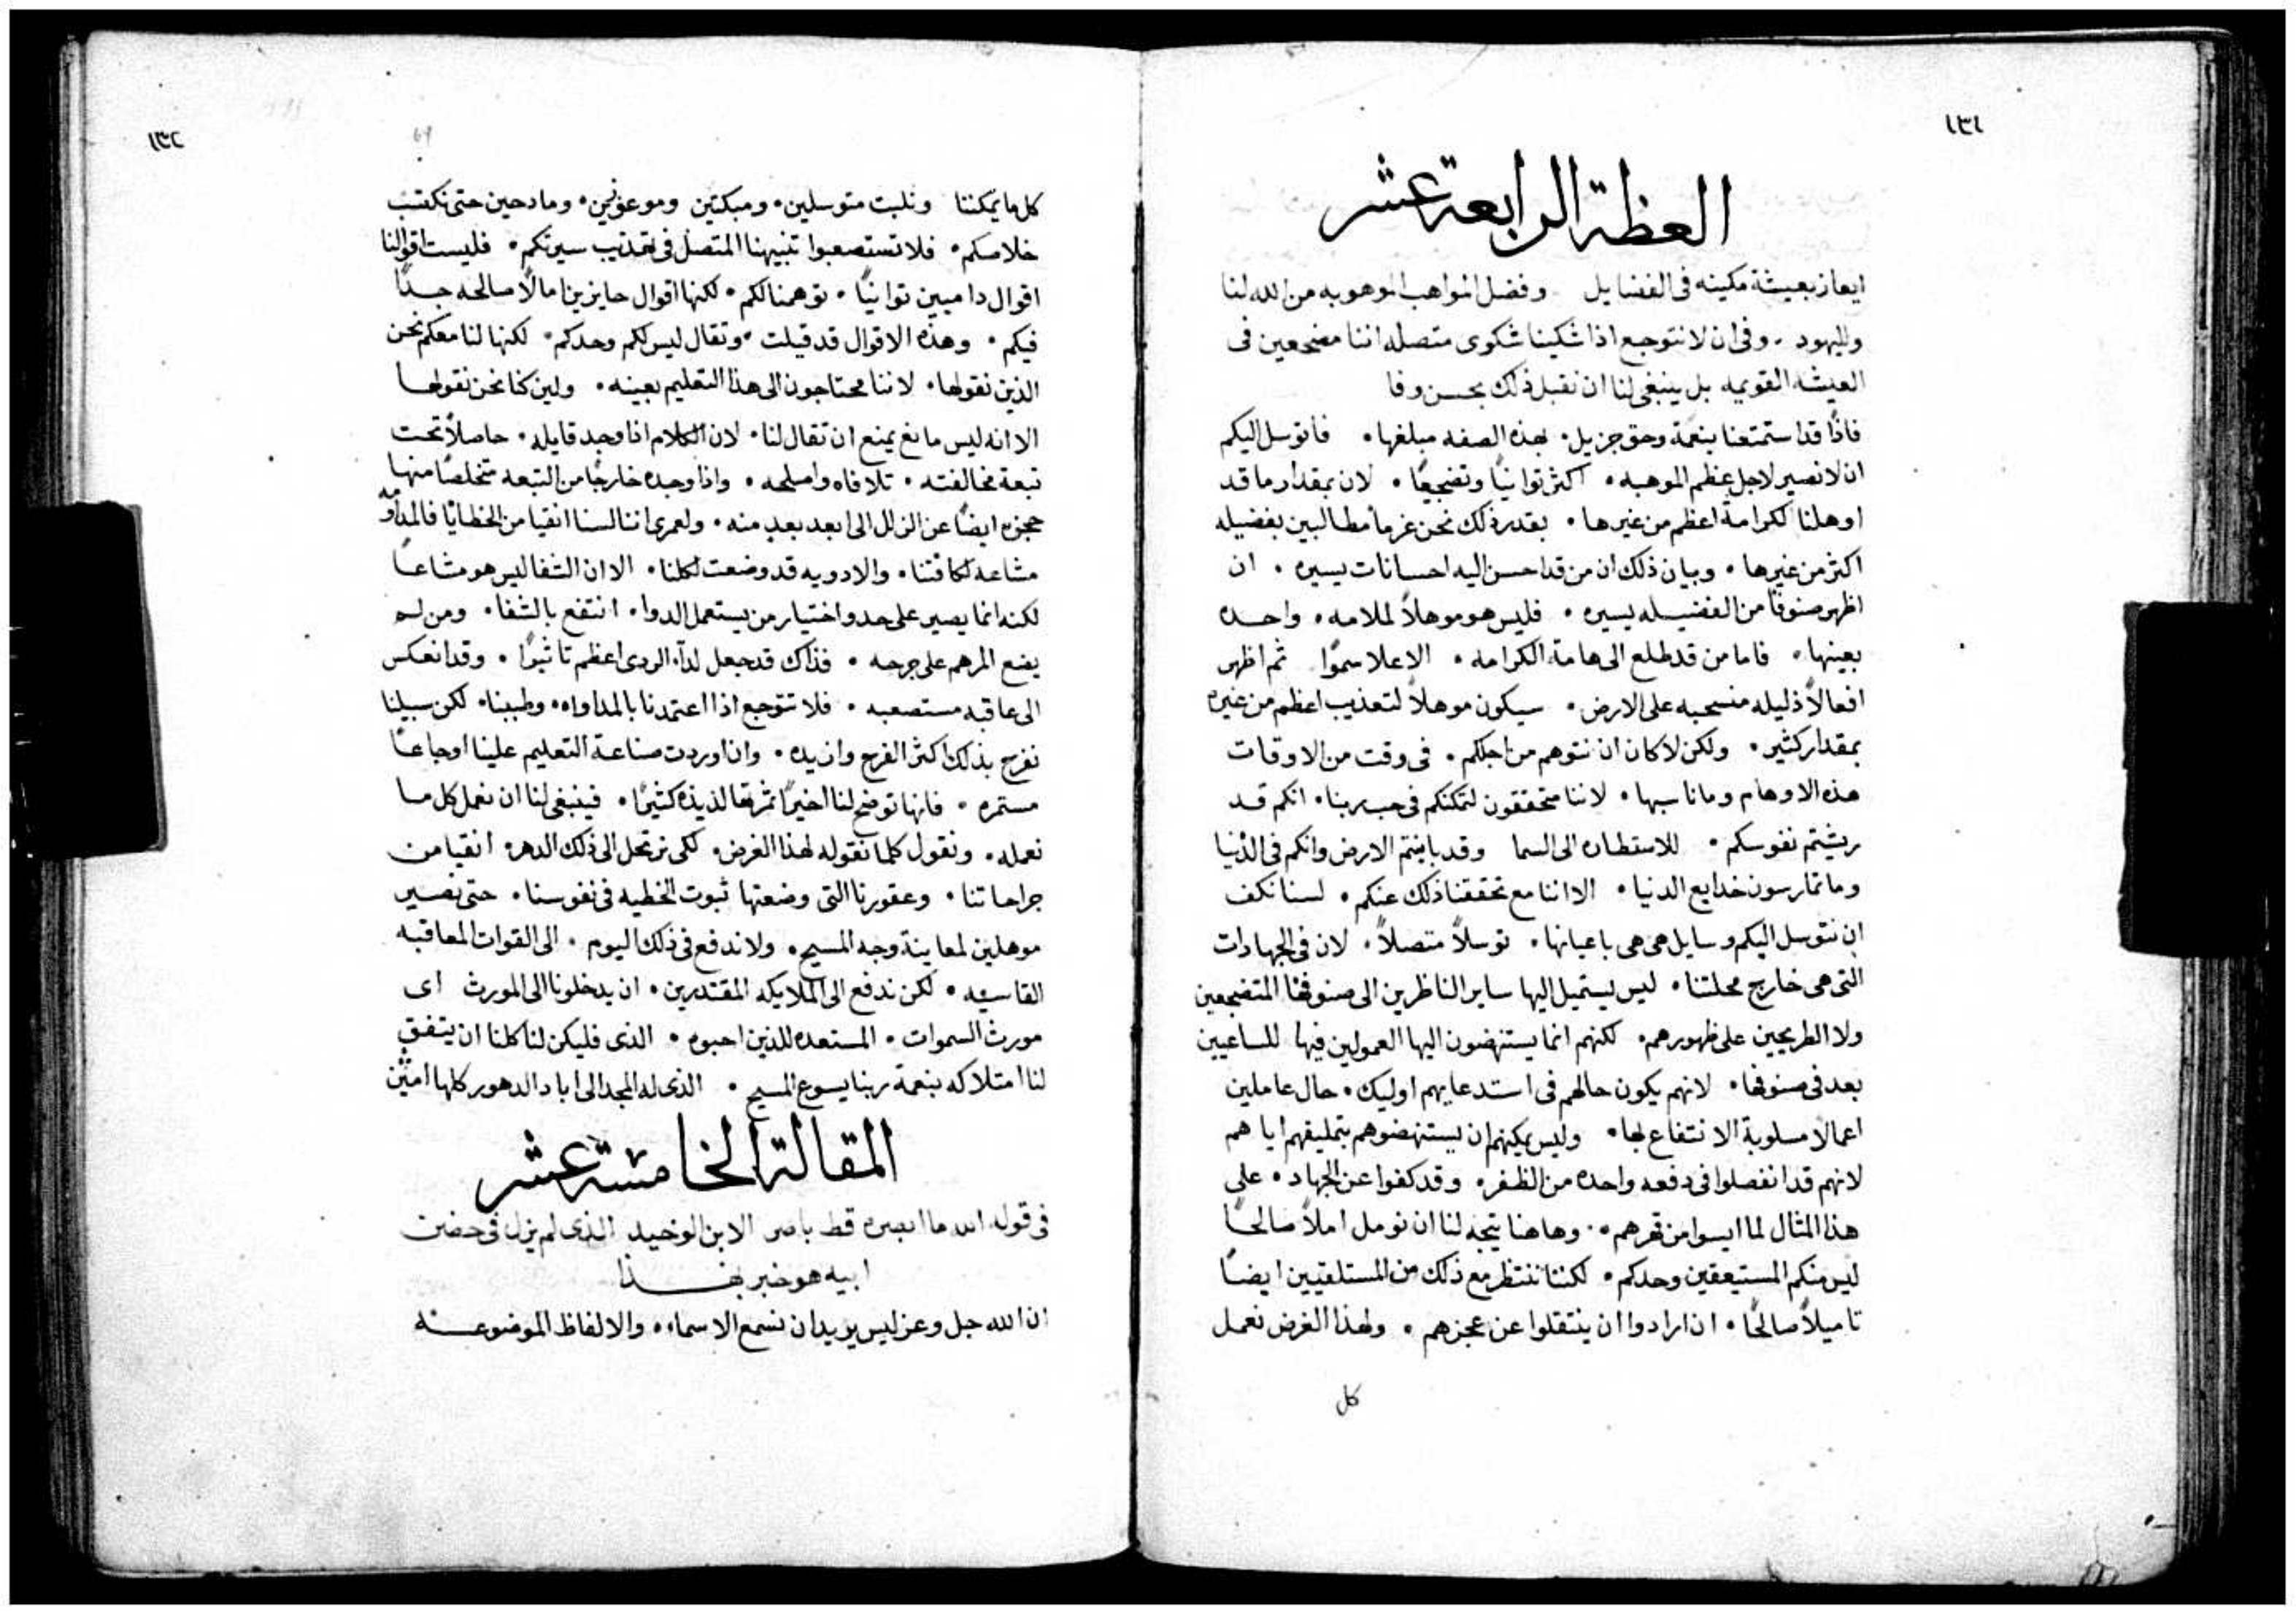 ١٣١
العظة الرابعة عشر
ايعاز بعيشة مكينه فى الفضايل وفضل المواهب الموهوبه من الله لنا
ولليهود . وفى ان لا نتوجع اذا شكينا شكوى متصله اننا مضجعين فى
العيشه القويمه بل ينبغى لنا ان نقبل ذلك بحسن وفا
فاذًا قد استمتعنا بنعمة وحق جزيل • بهذه الصفه مبلغها • فاتوسل اليكم
ان لا نصير لاجل عظم الموهبه • اكثر توانيًا وتضجيعًا • لان بمقدار ما قد
اوهلنا لكرامة اعظم من غيرها • بقدر ذلك نحن غرما مطالبين بفضيله
اكثر من غيرها • وبيان ذلك ان من قد احسن اليه احسانات يسيره • ان
اظهر صنوفًا من الفضيله يسيره • فليس هو موهلاً لملامه • واحده
بعينها • فاما من قد طلع الى هامة الكرامه • الاعلا سموًا ثم اظهر
افعالاً ذليله منسحبه على الارض • سيكون موهلاً لتعذيب اعظم من غيره
بمقدار كثير • ولكن لا كان ان نتوهم من اجلكم • فى وقت من الاوقات
هذه الاوهام وما ناسبها • لاننا متحققون لتمكنكم فى حب ربنا • انكم قد
ريشتم نفوسكم • للاستطاره الى السما وقد باينتم الارض وانكم فى الدنيا
وما تمارسون خدايع الدنيا • الا اننا مع تحققنا ذلك عنكم • لسنا نكف
ان نتوسل اليكم وسايل هى هى باعيانها • توسلاً متصلاً • لان فى الجهادات
التى هى خارج محلتنا • ليس يستميل اليها ساير الناظرين الى صنوفها المتضجعين
ولا الطريحين على ظهورهم • لكنهم انما يستنهضون اليها العمولين فيها للساعيين
بعد فى صنوفها • لانهم يكون حالهم فى استدعايهم اوليك • حال عاملين
اعمالا مسلوبة الانتفاع لها • وليس يمكنهم ان يستنهضوهم بتمليقهم اياهم
لانهم قد انفصلوا فى دفعه واحده من الظفر • وقد كفوا عن الجهاد • على
هذا المثال لما ايسوا من قهرهم • وهاهنا يتجه لنا ان نومل املاً صالحًا
ليس منكم المستيعقين وحدكم • لكننا ننتظر مع ذلك من المستلقيين ايضًا
تاميلاً صالحًا • ان ارادوا ان ينتقلوا عن عجزهم • ولهذا الغرض نعمل
كل
١٣٢
69
كل ما يمكننا ونلبت متوسلين • ومبكتين وموعوزين • ومادحين حتى نكتسب
خلاصكم • فلا تستصعبوا تنبيهنا المتصل فى تهذيب سيرتكم • فليست اقوالنا
اقوال داميين توانيًا • توهمنا لكم • لكنها اقوال حايزين امالاً صالحه جدًا
فيكم • وهذه الاقوال قد قيلت • وتقال ليس لكم وحدكم • لكنها لنا معكم نحن
الذين نقولها • لاننا محتاجون الى هذا التعليم بعينه • ولين كنا نحن نقولها
الا انه ليس مانع يمنع ان تقال لنا • لان الكلام اذا وجد قايله • حاصلاً تحت
تبعة مخالفته • تلافاه واصلحه • واذا وجده خارجًا من التبعه متخلصًا منها
حجزه ايضًا عن الزلل الى ابعد بعد منه • ولعمرى اننا لسنا انقيا من الخطايا فالمداومه
مشاعه لكافتنا • والادويه قد وضعت لكلنا • الا ان الشفا ليس هو مشاعًا
لكنه انما يصير على حد واختيار من يستعمل الدوا • انتفع بالشفا • ومن لم
يضع المرهم على جرحه • فذاك قد جعل لدآه الردى اعظم تاثيرًا • وقد انعكس
الى عاقبه مستصعبه • فلا نتوجع اذا اعتمدنا بالمداواه • وطببنا • لكن سبيلنا
نفرح بذلك اكثر الفرح وازيده • وان اوردت صناعة التعليم علينا اوجاعًا
مستمره • فانها توضح لنا اخيرًا ثمرتها لذيذه كثيرًا • فينبغى لنا ان نعمل كل ما
نعمله • ونقول كلما نقوله لهذا الغرض • لكى نرتحل الى ذلك الدهر • انقيا من
جراحاتنا • وعقورنا التى وضعتها ثبوت الخطيه فى نفوسنا • حتى نصير
موهلين لمعاينة وجه المسيح • ولا ندفع فى ذلك اليوم • الى القوات المعاقبه
القاسيه • لكن ندفع الى الملايكه المقتدرين • ان يدخلونا الى المورث اى
مورث السموات • المستعده للذين احبوه • الذى فليكن لنا كلنا ان يتفق
لنا امتلاكه بنعمة ربنا يسوع المسيح • الذى له المجد الى اباد الدهور كلها امين
المقالة الخامسة عشر
فى قوله الله ما ابصره قط باصر الابن الوحيد الذى لم يزل فى حضن
ابيه هو خبر بهذا
ان الله جل وعز ليس يريد ان نسمع الاسماء • والالفاظ الموضوعه